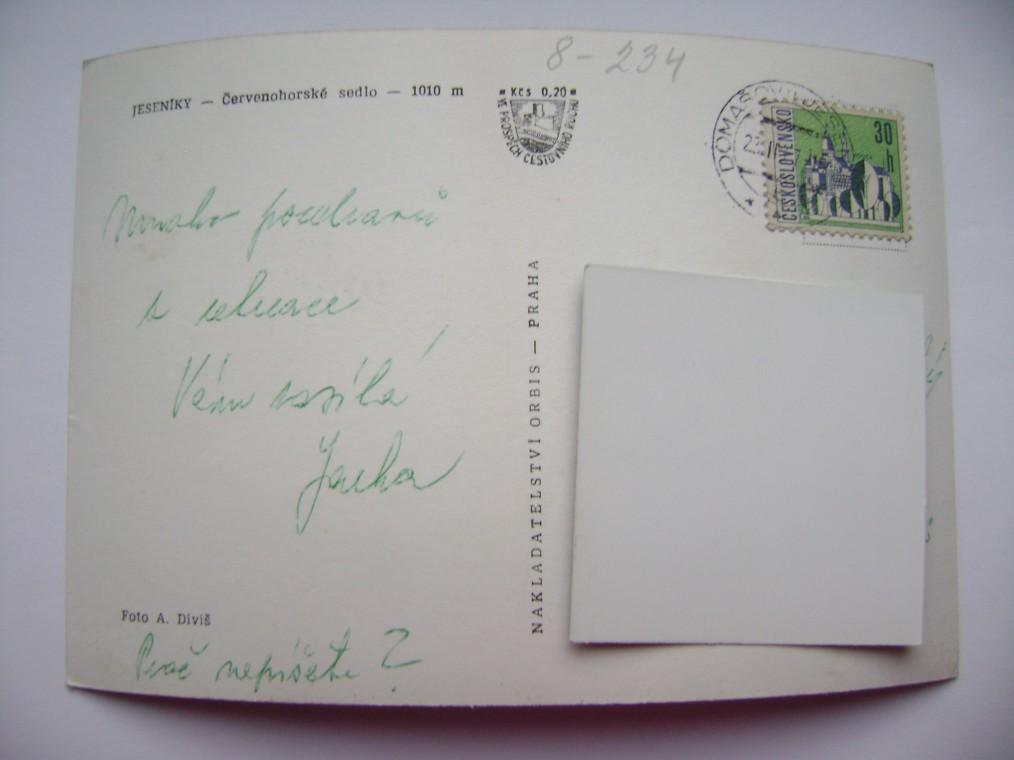 8-234
JESENÍKY — Červenohorské sedlo — 1010 m
Kčs 0,20
VE PROSPĚCH CESTOVNÍHO RUCHU
DOMAŠOV
ČESKOSLOVENSKO
30 h
Mnoho pozdravů
s
Vám zasílá
NAKLADATELSTVÍ ORBIS — PRAHA
Foto A. Diviš
Proč nepíšete?